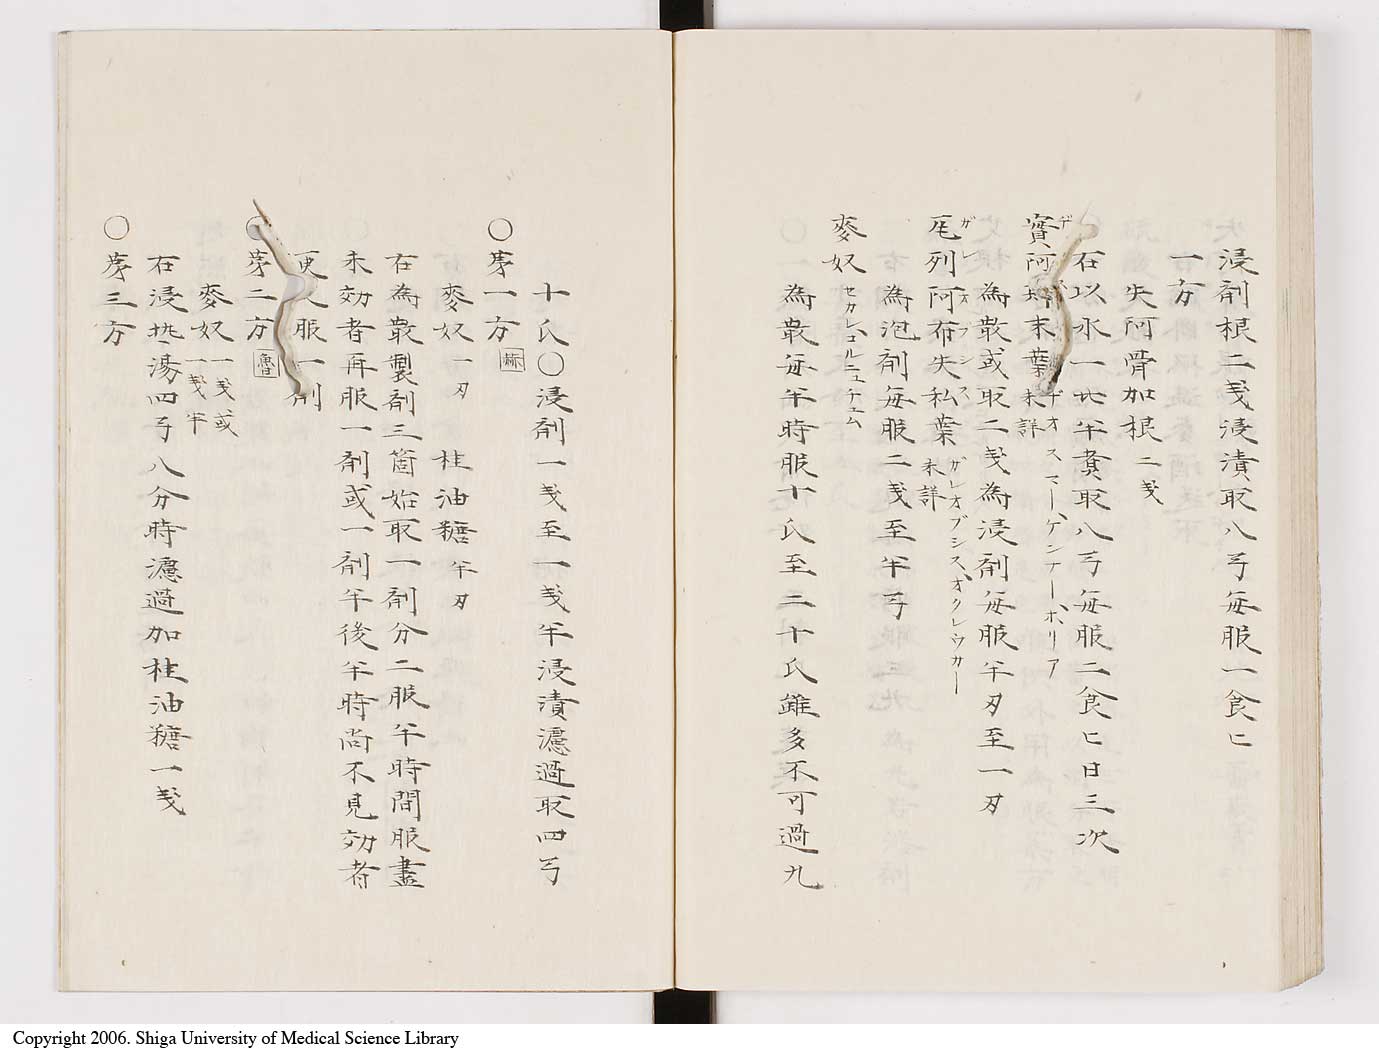 浸剤根二戔浸漬取八弓毎服一食匕
一方
失阿骨加根二戔
右以水一
半煮取八弓毎服二食匕日三次
寳阿
末葉未詳
ゲオスマー、ゲンナー、ボリア
為散或取二戔為浸剤毎服半刄至一刄
芫列阿布失私葉未詳
ガレオブシス
ガレオブシス、オクレウカー
為泡剤毎服二戔至半弓
麥奴セカレ、コルニュチュム
為散毎半時服十氏至二十氏雖多不可過九
十氏○浸剤一戔至一戔半浸漬濾過取四弓
○苐一方
麥奴一刄 桂油糖半刄
右為散製剤三箇始取一剤分二服半時間服盡
未効者再服一剤或一剤午後半時尚不見効者
更
服一剤
○苐二方魯
麥奴一戔或一戔半
右浸热湯四弓八分時濾過加桂油糖一戔
○苐三方
Copyright 2006. Shiga University of Medical Science Library